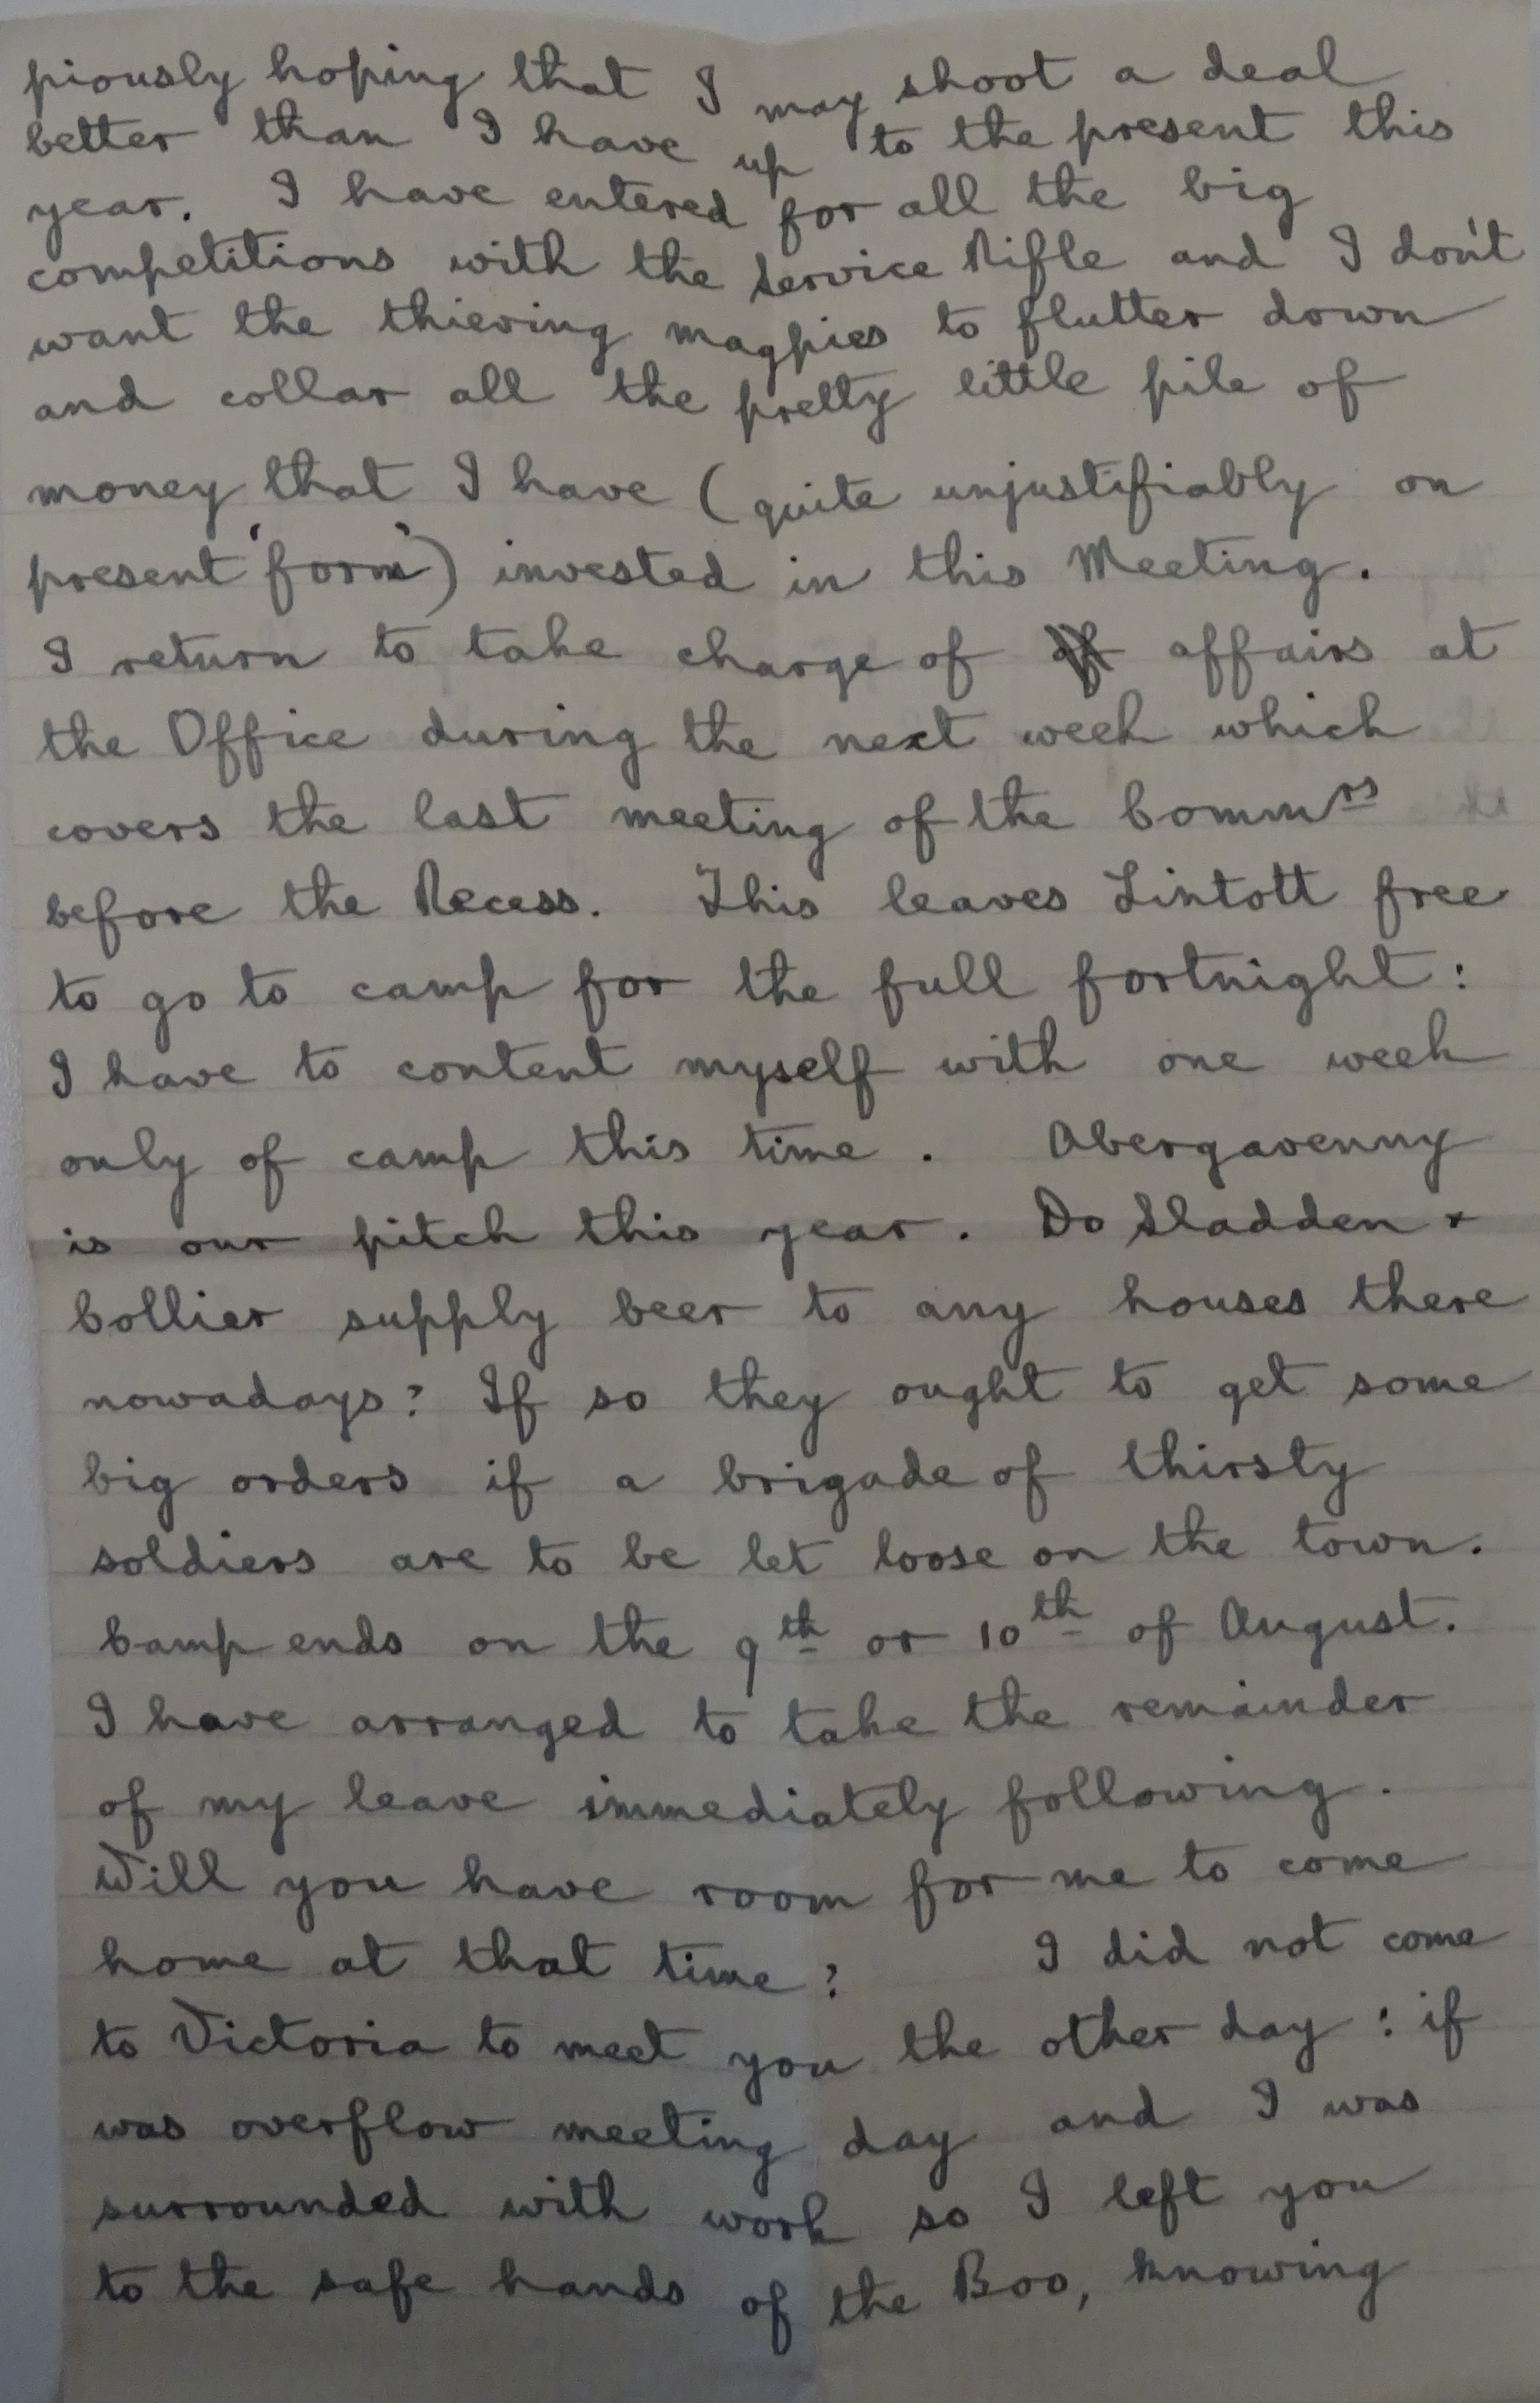 piously hoping that I may shoot a deal
better than I have up to the present this
year. I have entered for all the big
competitions with the Service Rifle and I don't
want the thieving magpies to flutter down
and collar all the pretty little pile of
money that I have (quite unjustifiably on
present 'form') invested in this Meeting.
I return to take charge of of affairs at
the Office during the next week which
covers the last meeting of the Commrs
before the Recess. This leaves Lintott free
to go to camp for the full fortnight:
I have to content myself with one week
only of camp this time. Abergavenny
is our pitch this year. Do Sladden &
Collier supply beer to any houses there
nowadays? If so they ought to get some
big orders if a brigade of thirsty
soldiers are to be let loose on the town.
Camp ends on the 9th or 10th of August.
I have arranged to take the remainder
of my leave immediately following.
Will you have room for me to come
home at that time? I did not come
to Victoria to meet you the other day: if
was overflow meeting day and I was
surrounded with work so I left you
to the safe hands of the Boo, knowing